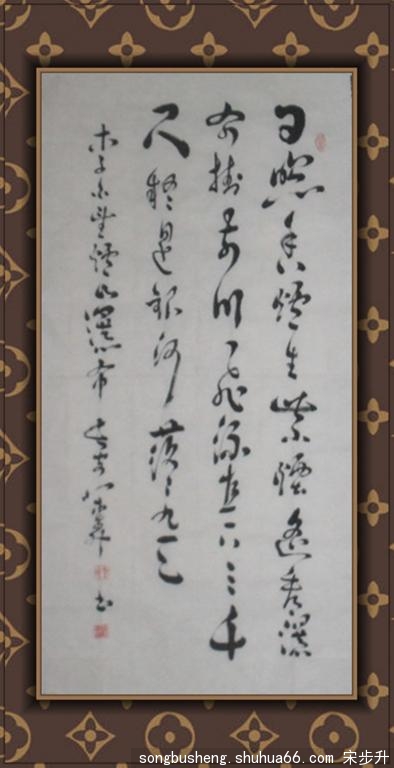 日照香爐生紫煙遙看瀑
布掛前川飛流直下三千
尺疑是銀河落九天
李白望爐山瀑布 步升 书
songbusheng.shuhua66.com 宋步升